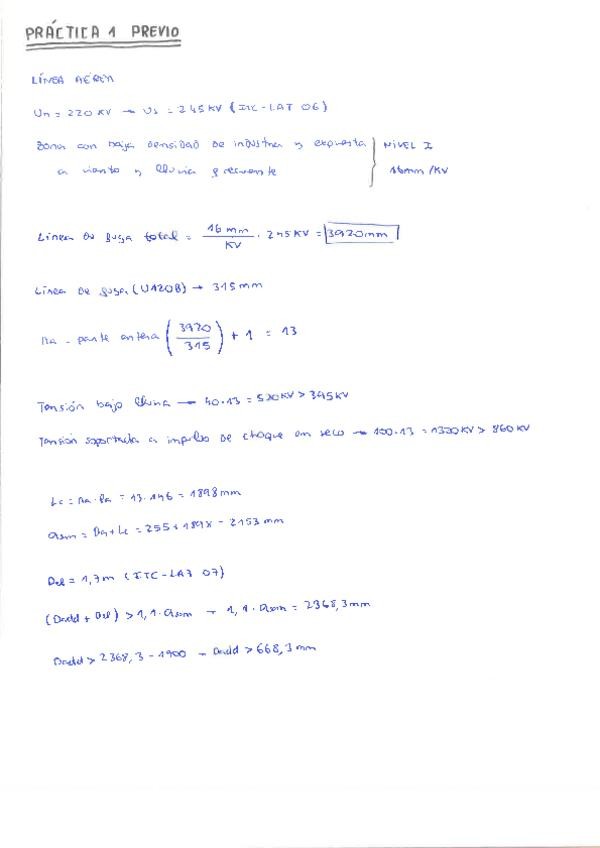 PRÁCTICA 1 PREVIO
LÍNEA AÉREA
Un = 220 KV → Us = 245 KV (ITC-LAT 06)
Zona con baja densidad de industria y expuesta } NIVEL I
a viento y lluvia frecuente } 16mm/KV
Línea de fuga total = 16 mm / KV · 245 KV = 3920mm
Línea de fuga (U120B) → 315 mm
na - parte entera (3920 / 315) + 1 = 13
Tensión bajo lluvia → 40·13 = 520 KV > 395 KV
Tensión soportada a impulso de choque en seco → 100·13 = 1320 KV > 860 KV
Lc = na · Pa = 13·146 = 1898 mm
asom = Da + Lc = 255 + 1898 = 2153 mm
Del = 1,7 m (ITC-LAT 07)
(Dadd + Del) > 1,1 · asom → 1,1 · asom = 2368,3 mm
Dadd > 2368,3 - 1700 → Dadd > 668,3 mm